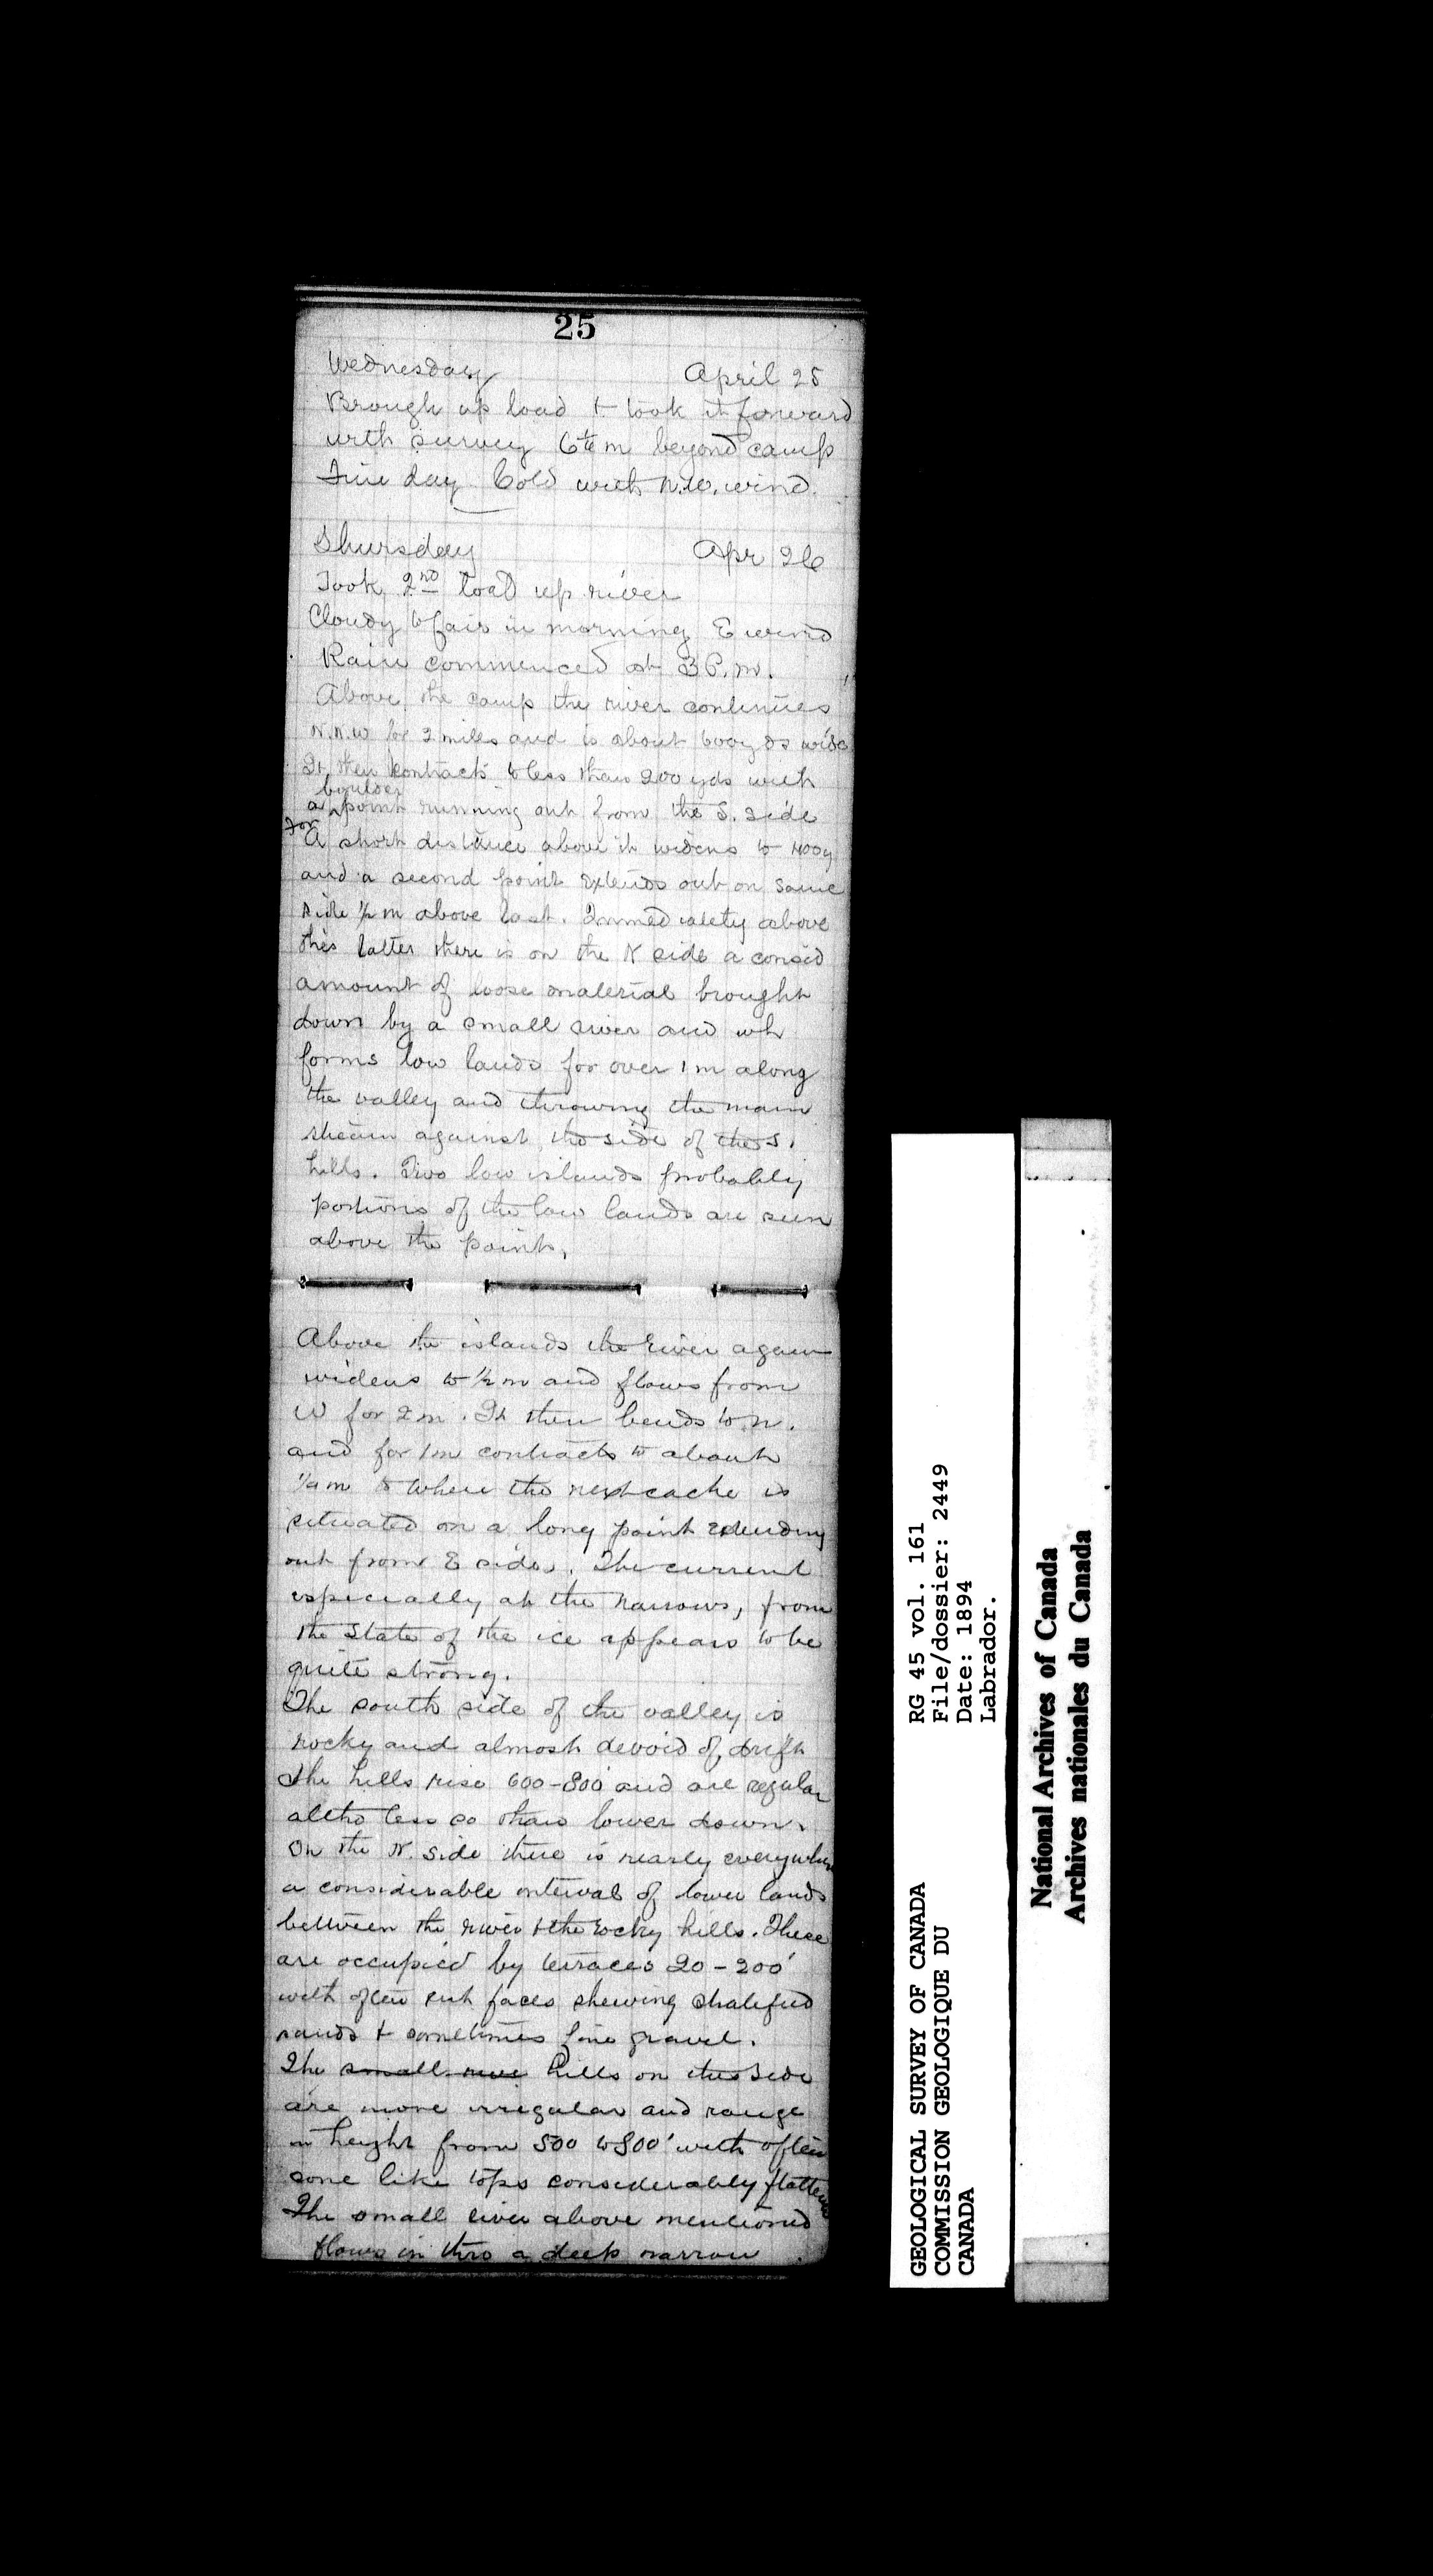 25
Wednesday April 25
Brough up load & took it forward
with survey 6 m beyond camp
Fine day Cold with N.W. wind.
Thursday Apr 26
Took 2nd load up river
Cloudy to fair in morning E wind
Rain commenced at 3 P.m.
Above the camp the river continues
N.N.W for 2 miles and is about 600 yds wide
It then contracts to less than 200 yds with
boulder
a point running out from the S. side
For
A short distance above it widens to 400 y
and a second point extends out on same
side 1/2 m above last. Immediately above
this latter there is on the N side a consid
amount of loose material brought
down by a small river and wh
forms low lands for over 1 m along
the valley and throwing the main
stream against the side of the S.
hills. Two low islands probably
portions of the low lands are seen
above the point.
Above the islands the river again
widens to 1/2 m and flows from
W for 2 m. It then bends to N.
and for 1 m contracts to about
1/4 m to where the next cache is
situated on a long point extending
out from E side. The current
especially at the narrows, from
the state of the ice appears to be
quite strong.
The south side of the valley is
rocky and almost devoid of drift
The hills rise 600-800' and are regular
altho less so than lower down.
On the N. side there is nearly everywhere
a considerable interval of lower lands
between the river & the rocky hills. These
are occupied by terraces 20-200'
with often cut faces shewing stratified
sands & sometimes fine gravel.
The small rive hills on this side
are more irregular and range
in height from 500 to 800' with often
cone like tops considerably flattened
The small river above mentioned
flows in thro a deep narrow
GEOLOGICAL SURVEY OF CANADA
COMMISSION GEOLOGIQUE DU
CANADA
RG 45 vol. 161
File/dossier: 2449
Date: 1894
Labrador.
National Archives of Canada
Archives nationales du Canada